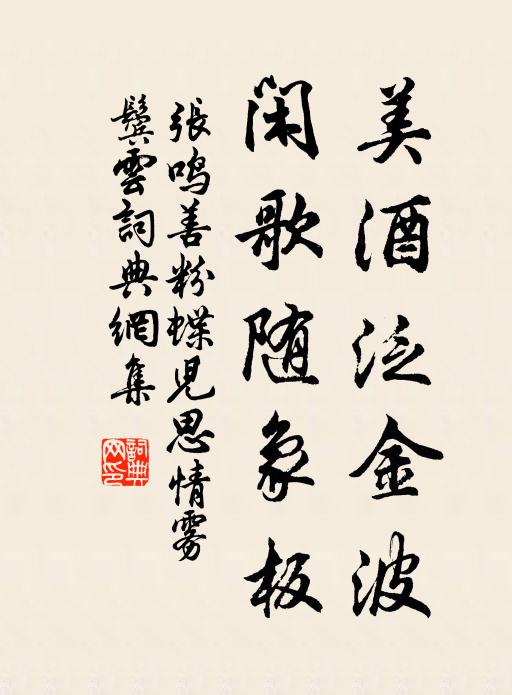 美酒泛金波
闲歌随象板
張鸣善粉蝶児思情雾
鬓雲詞典網集
詞典网印